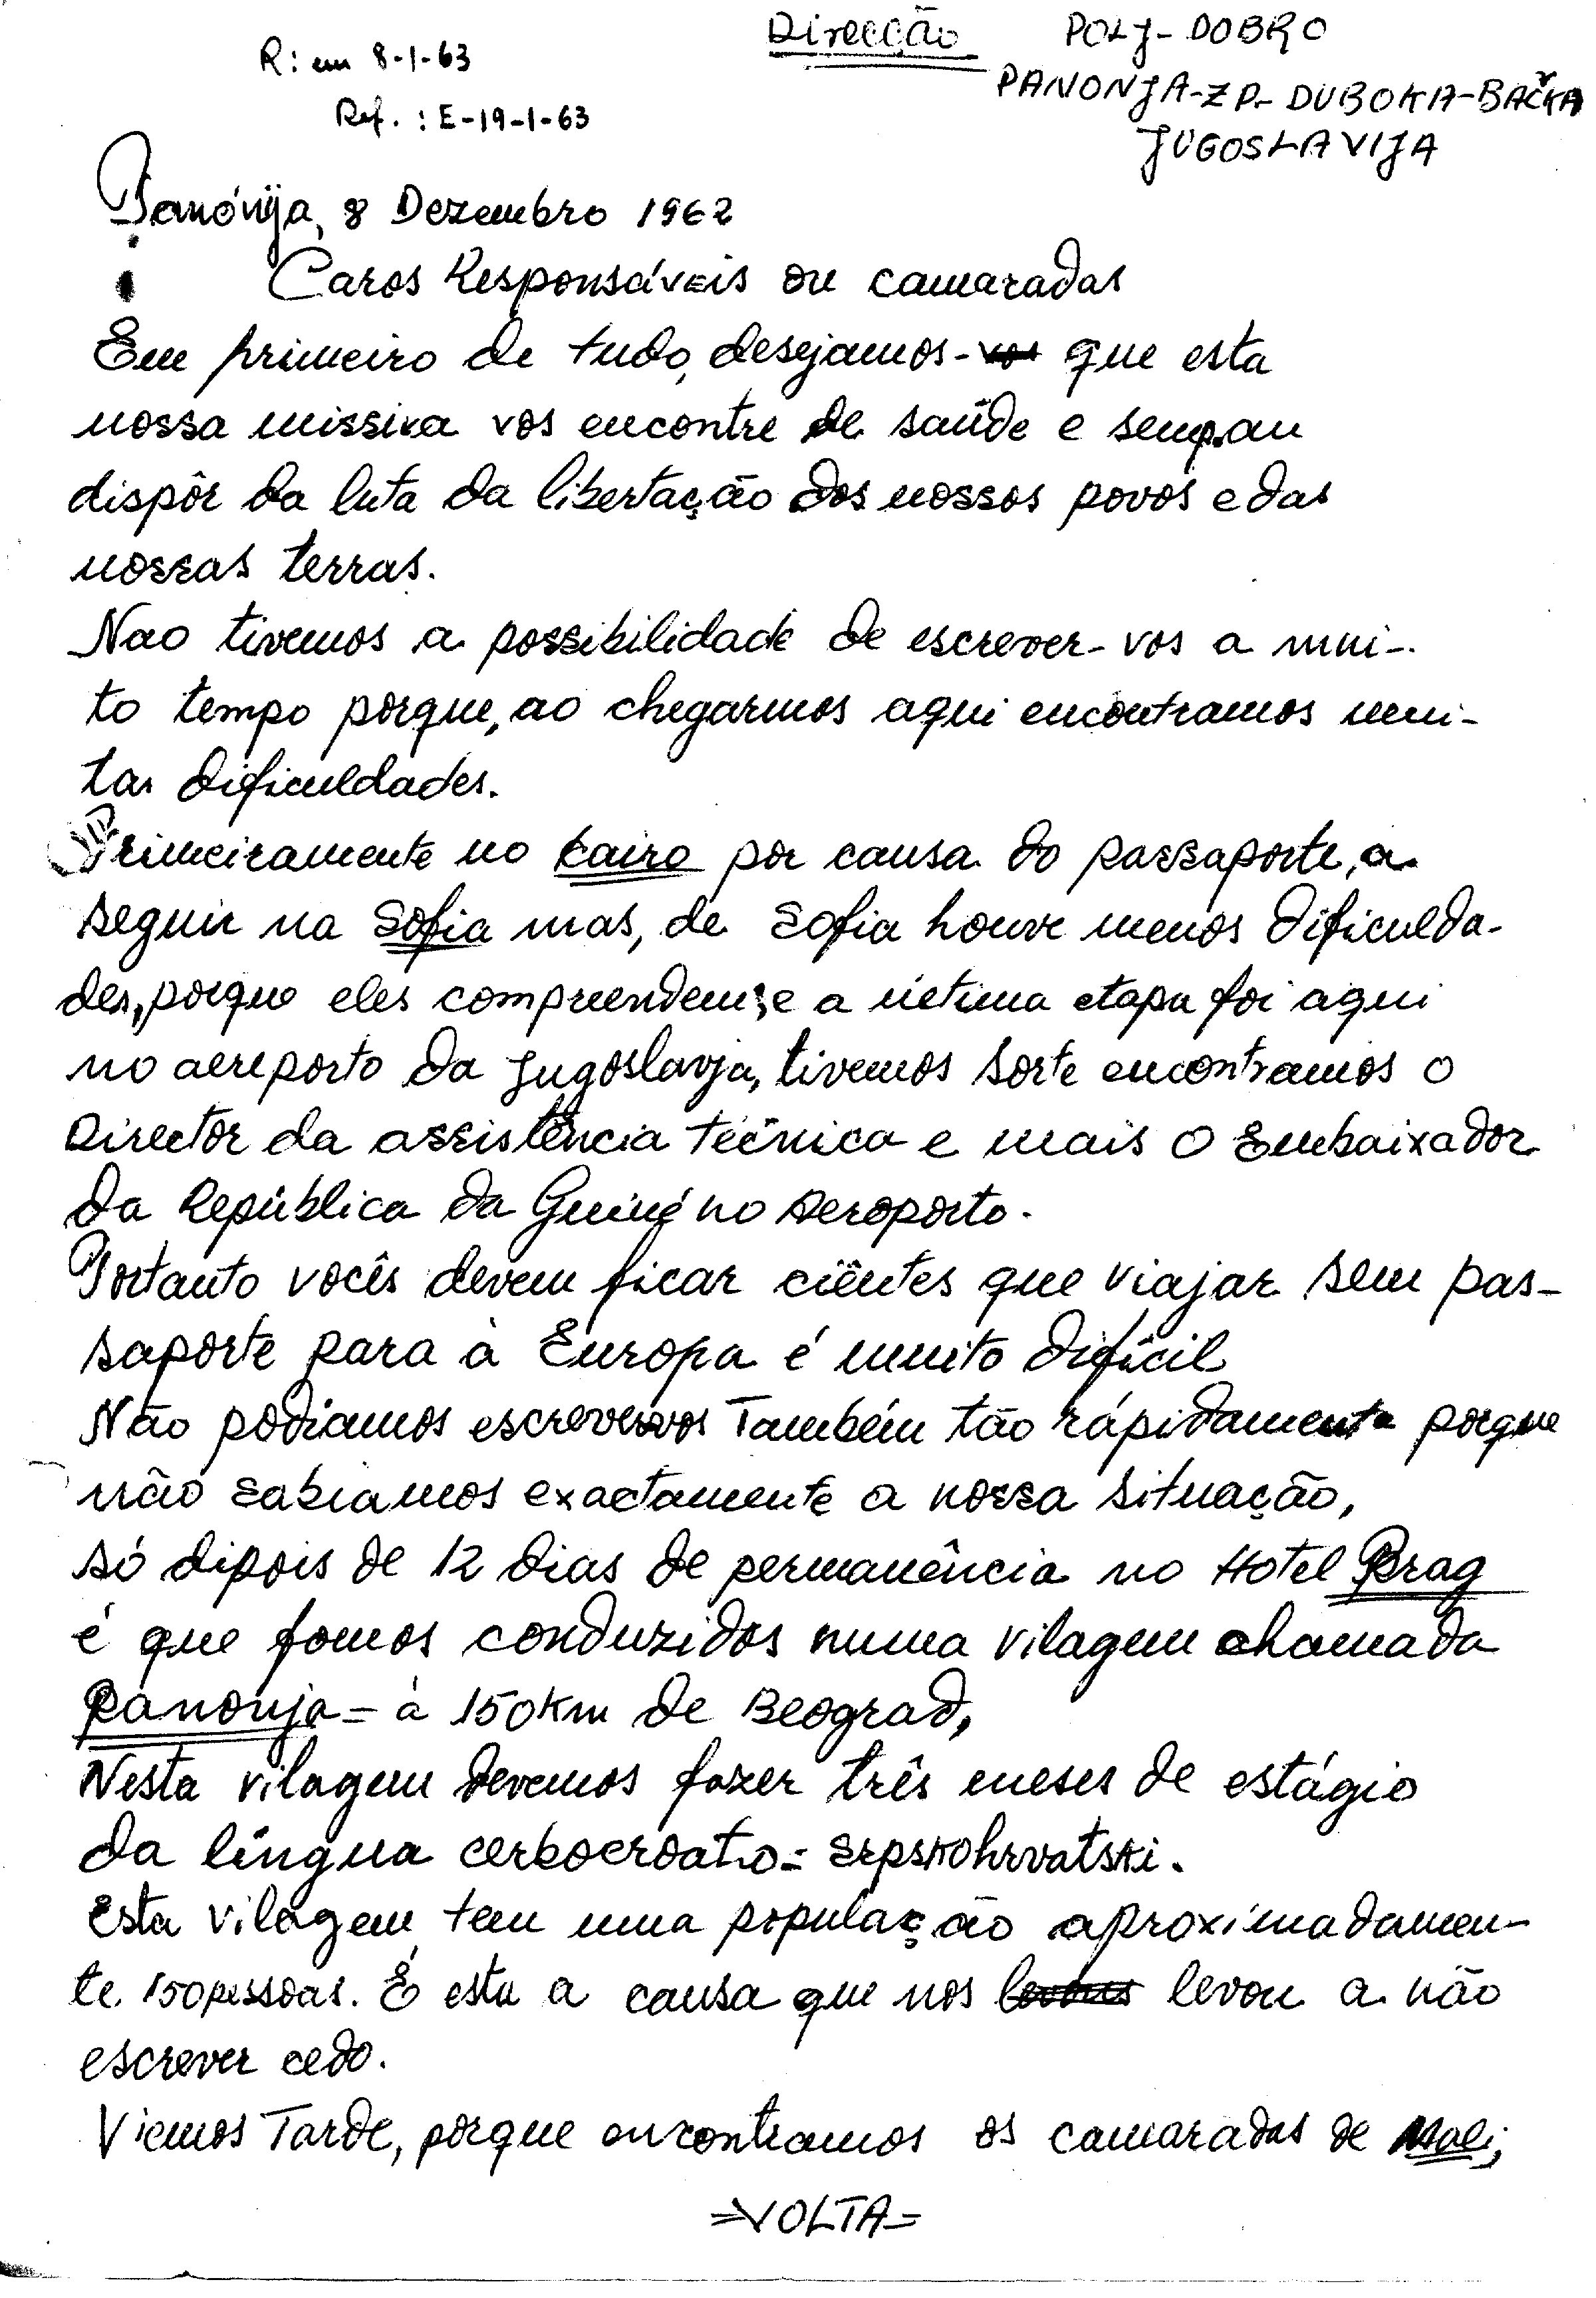 R: em 8-1-63
Ref.: E-19-1-63
Direcção POLJ-DOBRO
PANONJA-ZP-DUBOKA-BAČKA
JUGOSLAVIJA
Panónija, 8 Dezembro 1962
Caros Responsáveis ou camaradas
Em primeiro de tudo, desejamos-vos que esta
nossa missiva vos encontre de saúde e semp.au
dispôr da luta da libertação dos nossos povos e das
nossas terras.
Nao tivemos a possibilidade de escrever-vos a mui-
to tempo porque, ao chegarmos aqui encontramos mui-
tas dificuldades.
Primeiramente no Cairo por causa do passaporte, a
seguir na Sofia mas, de Sofia houve menos dificulda-
des, porque eles compreendem; e a última etapa foi aqui
no aereporto da Jugoslavja, tivemos sorte encontramos o
Director da assistência técnica e mais o Embaixador
da República da Guiné no Aeroporto.
Portanto vocês devem ficar ciêntes que viajar sem pas-
saporte para à Europa é muito difícil
Não podiamos escrevervos Também tão rápidamente porque
não sabiamos exactamente a nossa situação,
só dipois de 12 dias de permanência no Hotel Prag
é que fomos conduzidos numa vilagem chamada
Panonja = à 150km de Beograd,
Nesta vilagem devemos fazer três meses de estágio
da língua cerbocroato = srpskohrvatski.
Esta vilagem tem uma população aproximadamen-
te 150 pessoas. É esta a causa que nos levou a não
escrever cedo.
Viemos Tarde, porque encontramos os camaradas de Mali;
=VOLTA=